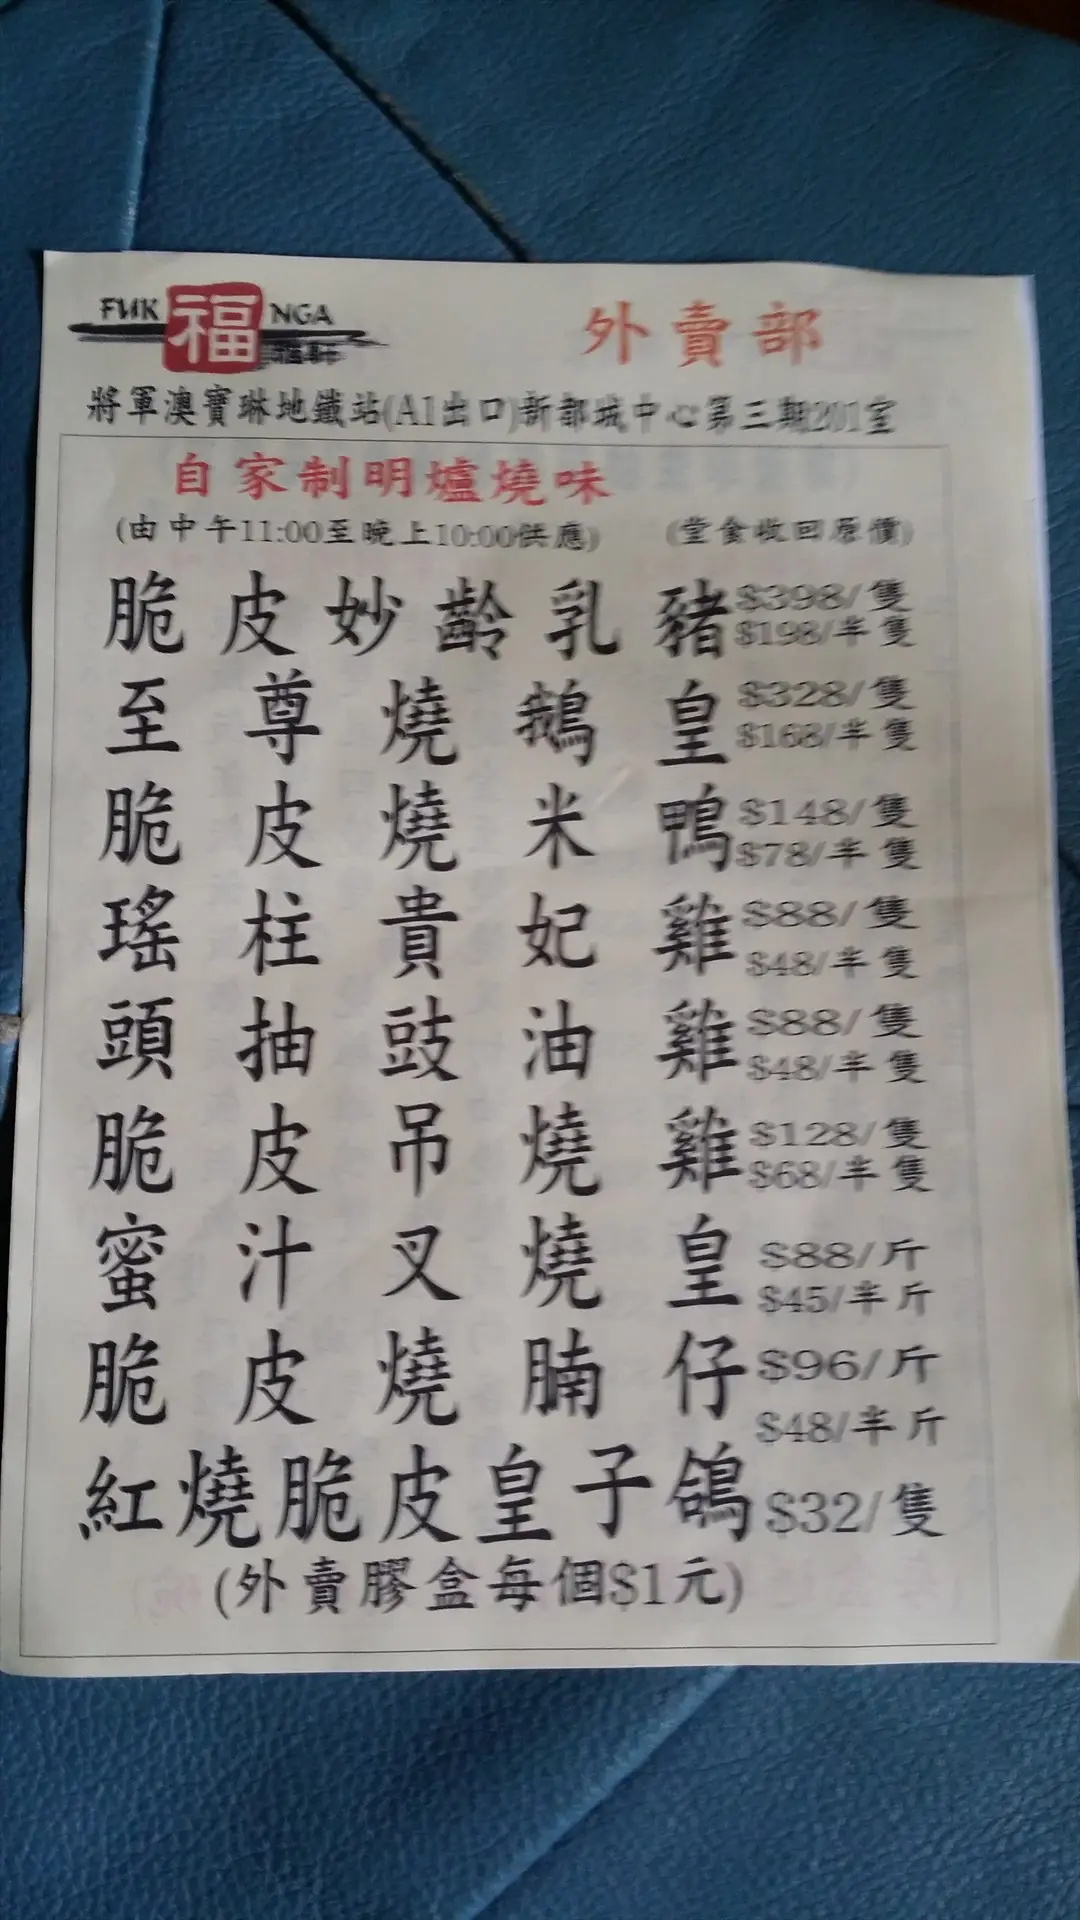 FUK 福 NGA
外賣部
將軍澳寶琳地鐵站(A1出口)新都城中心第三期201室
自家制明爐燒味
(由中午11:00至晚上10:00供應) (堂食收回原價)
脆皮妙齡乳豬 $398/隻
$198/半隻
至尊燒鵝皇 $328/隻
$168/半隻
脆皮燒米鴨 $148/隻
$78/半隻
瑤柱貴妃雞 $88/隻
$48/半隻
頭抽豉油雞 $88/隻
$48/半隻
脆皮吊燒雞 $128/隻
$68/半隻
蜜汁叉燒皇 $88/斤
$45/半斤
脆皮燒腩仔 $96/斤
$48/半斤
紅燒脆皮皇子鴿 $32/隻
(外賣膠盒每個$1元)